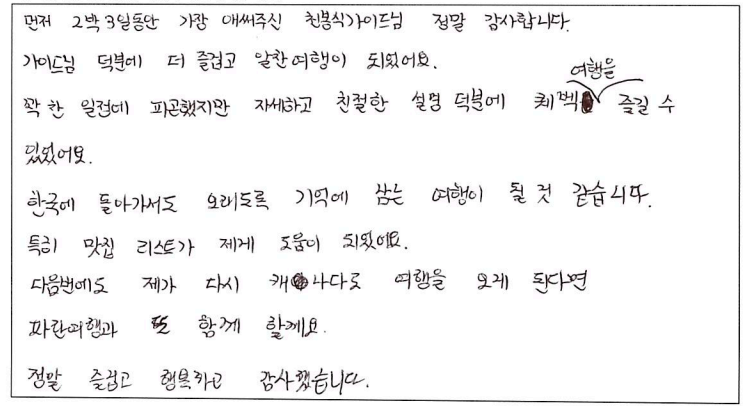 먼저 2박3일동안 가장 애써주신 천봉식가이드님 정말 감사합니다.
가이드님 덕분에 더 즐겁고 알찬여행이 되었어요.
꽉 찬 일정에 피곤했지만 자세하고 친절한 설명 덕분에 퀘벡 여행을 즐길 수
있었어요.
한국에 돌아가서도 오래도록 기억에 남는 여행이 될 것 같습니다.
특히 맛집 리스트가 제게 도움이 되었어요.
다음번에도 제가 다시 캐나다로 여행을 오게 된다면
파란여행과 또 함께 할게요.
정말 즐겁고 행복하고 감사했습니다.